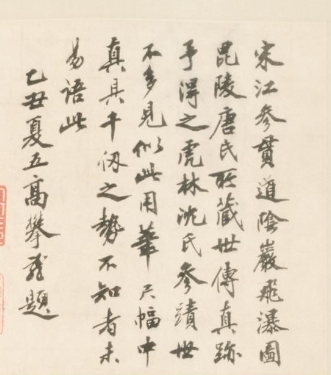 宋江參貫道陰巖飛瀑圖
毘陵唐氏所藏世傳真跡
予得之虎林沈氏參蹟世
不多見似此用筆尺幅中
真具千仞之勢不知者未
易語此
乙丑夏五高攀龍題